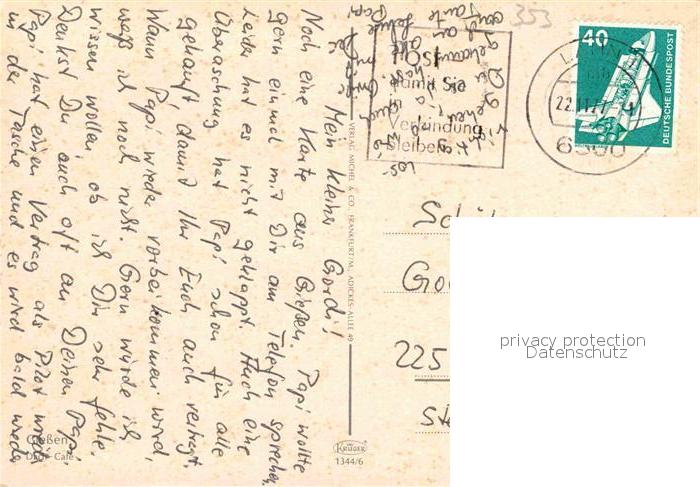 Mein kleiner Gordi!
Noch eine Karte aus Gießen. Papi wollte
gern einmal mit Dir am Telefon sprechen,
leider hat es nicht geklappt. Auch eine
Überaschung hat Papi schon für alle
gekauft, damit Ihr Euch auch vertragt.
Wann Papi wieder vorbei kommen wird,
weiß ich noch nicht. Gern würde ich
wissen wollen, ob ich Dir sehr fehle.
Denkst Du auch oft an Deinen Papi.
Papi hat einen Vertrag als Pilot wieder
in der Tasche und es wird bald wieder
353
Post
damit Sie
in
Verbindung
bleiben
22.11.77
6300
40
DEUTSCHE BUNDESPOST
VERLAG MICHEL & CO., FRANKFURT/M., ADICKES-ALLEE 49
225
Gießen
Dach-Café
KRÜGER
1344/6
privacy protection
Datenschutz